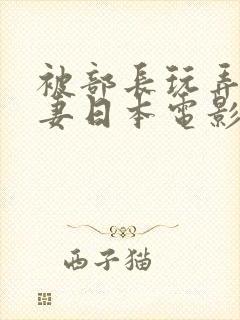 被部長玩弄
妻日本電影
西子猫